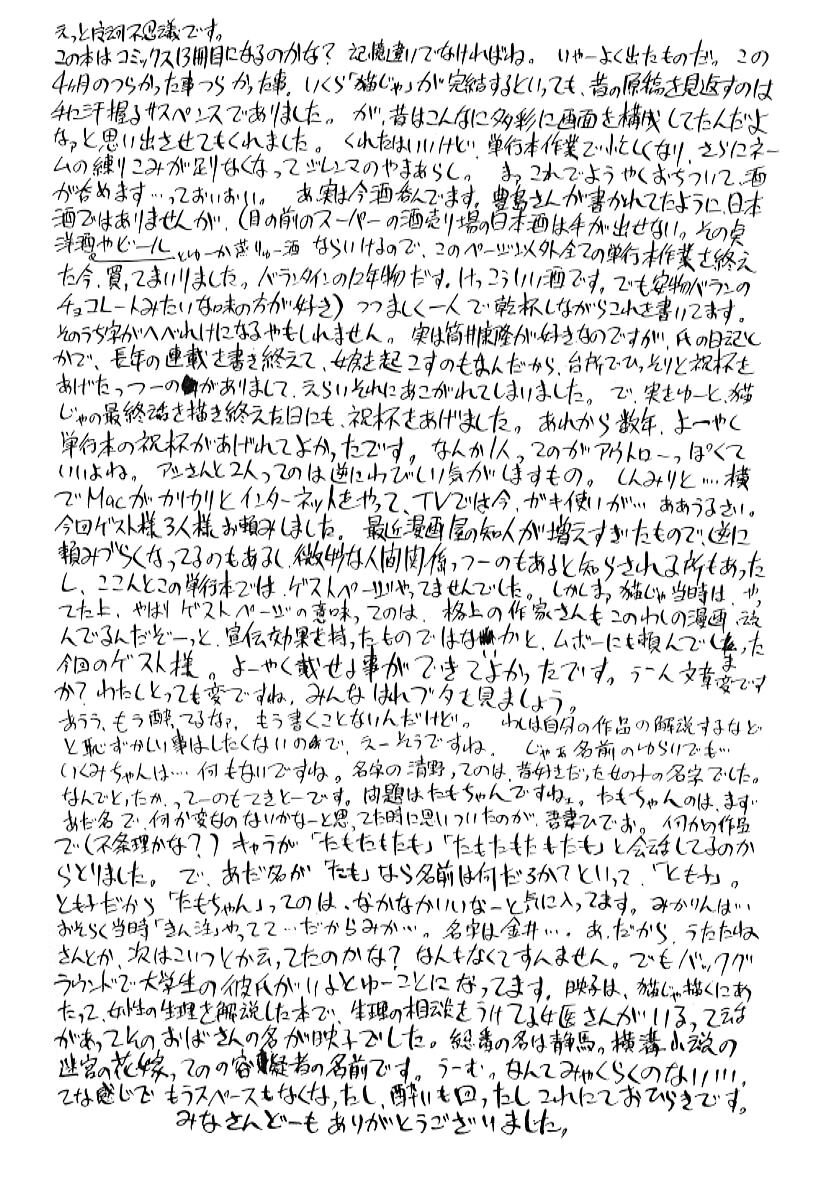 えっと唐沢不思議です。
この本はコミックス13冊目になるのかな? 記憶違いでなければね。 いやーよく出たものだ。 この
4ヶ月のつらかった事つらかった事。いくら「猫じゃ」が完結するといっても、昔の原稿を見返すのは
手に汗握るサスペンスでありました。 が、昔はこんなに多彩に画面を構成してたんだよ
なァと思い出させてもくれました。 くれたはいいけど、単行本作業で忙しくなり、さらにネー
ムの練りこみが足りなくなってジレンマのやまあらし。 まっこれでようやくおちついて、酒
が呑めます…っておいおい。 あ、実は今酒呑んでます。豊島さんが書かれてたように、日本
酒ではありませんが、(目の前のスーパーの酒売り場の日本酒は手が出せない。その点
洋酒やビールとゆーか蒸りゅー酒ならいけるので、このページ以外全ての単行本作業を終え
た今、買ってまいりました。バランタインの12年物だす。けっこういい酒です。でも安物バランの
チョコレートみたいな味の方が好き)つつましく一人で乾杯しながらこれを書いてます。
そのうち字がへべれけになるやもしれません。 実は筒井康隆が好きなのですが、氏の日記と
かで、長年の連載を書き終えて、女房を起こすのもなんだから、台所でひっそりと祝杯を
あげたっつーのがありまして、えらいそれにあこがれてしまいました。 で、実をゆーと、猫
じゃの最終話を描き終えた日にも、祝杯をあげました。 あれから数年、よーやく
単行本の祝杯があげれてよかったです。 なんか1人ってのがアウトローっぽくて
いいよね。 アシさんと2人ってのは逆にわびしい気がしますもの。 しんみりと…横
でMacがカリカリとインターネットをやって、TVでは今、ガキ使いが… ああうるさい。
今回ゲスト様3人様お頼みしました。 最近漫画屋の知人が増えすぎたもので、逆に
頼みづらくなってるのもあるし、微妙な人間関係っつーのもあると知らされる所もあった
し、ここんとこの単行本では、ゲストページやってませんでした。しかしまっ猫じゃ当時は、やっ
てた上、やはりゲストページの意味ってのは、格上の作家さんもこのわしの漫画、読
んでるんだぞーっと、宣伝効果を持ったものではないかと、ムボーにも頼んでしまった
今回のゲスト様。 よーやく載せる事ができてよかったです。 うーん文章変です
か?わたしとっても変ですね、みんなはれブタも見ましょう。
あうう、もう酔ってるなァ、もう書くことないんだけど。 わしは自分の作品の解説するなど
と恥ずかしい事はしたくないので、えーそうですね。 じゃぁ名前のゆらいでも…
いくみちゃんは… 何もないですね。名字の清野ってのは、昔好きだった女の子の名字でした。
なんでとったかってーのもてきとーです。問題はたもちゃんですねェ。たもちゃんのは、まず
あだ名で、何か変なのないかなーと思ってた時に思いついたのが、吾妻ひでお。何かの作品
で(不条理かな?)キャラが「たもたもたも」「たもたもたもたも」と会話してるのか
らとりました。 で、あだ名が「たも」なら名前は何だろか?といって、「とも子」。
とも子だから「たもちゃん」ってのは、なかなかいいなーと気に入ってます。みかりんは…
おそらく当時「きん注」やってて…だからみか…。名字は金井…。 あ、だから、うたたね
さんとか、次はこいつとか云ってたのかな? なんもなくてすんません。でもバックグ
ラウンドで大学生の彼氏がいるとゆーことになってます。 映子は、猫じゃ描くにあ
たって、女性の生理を解説した本で、生理の相談をうけてる女医さんがいるって話
があってそのおばさんの名が映子でした。 総番の名は静馬っ。横溝小説の
迷宮の花嫁ってのの容疑者の名前です。 うーむっ。なんてみゃくらくのないいい、
てな感じで もうスペースもなくなったし、酔いも回ったしこれにておひらきです。
みなさんどーもありがとうございました。